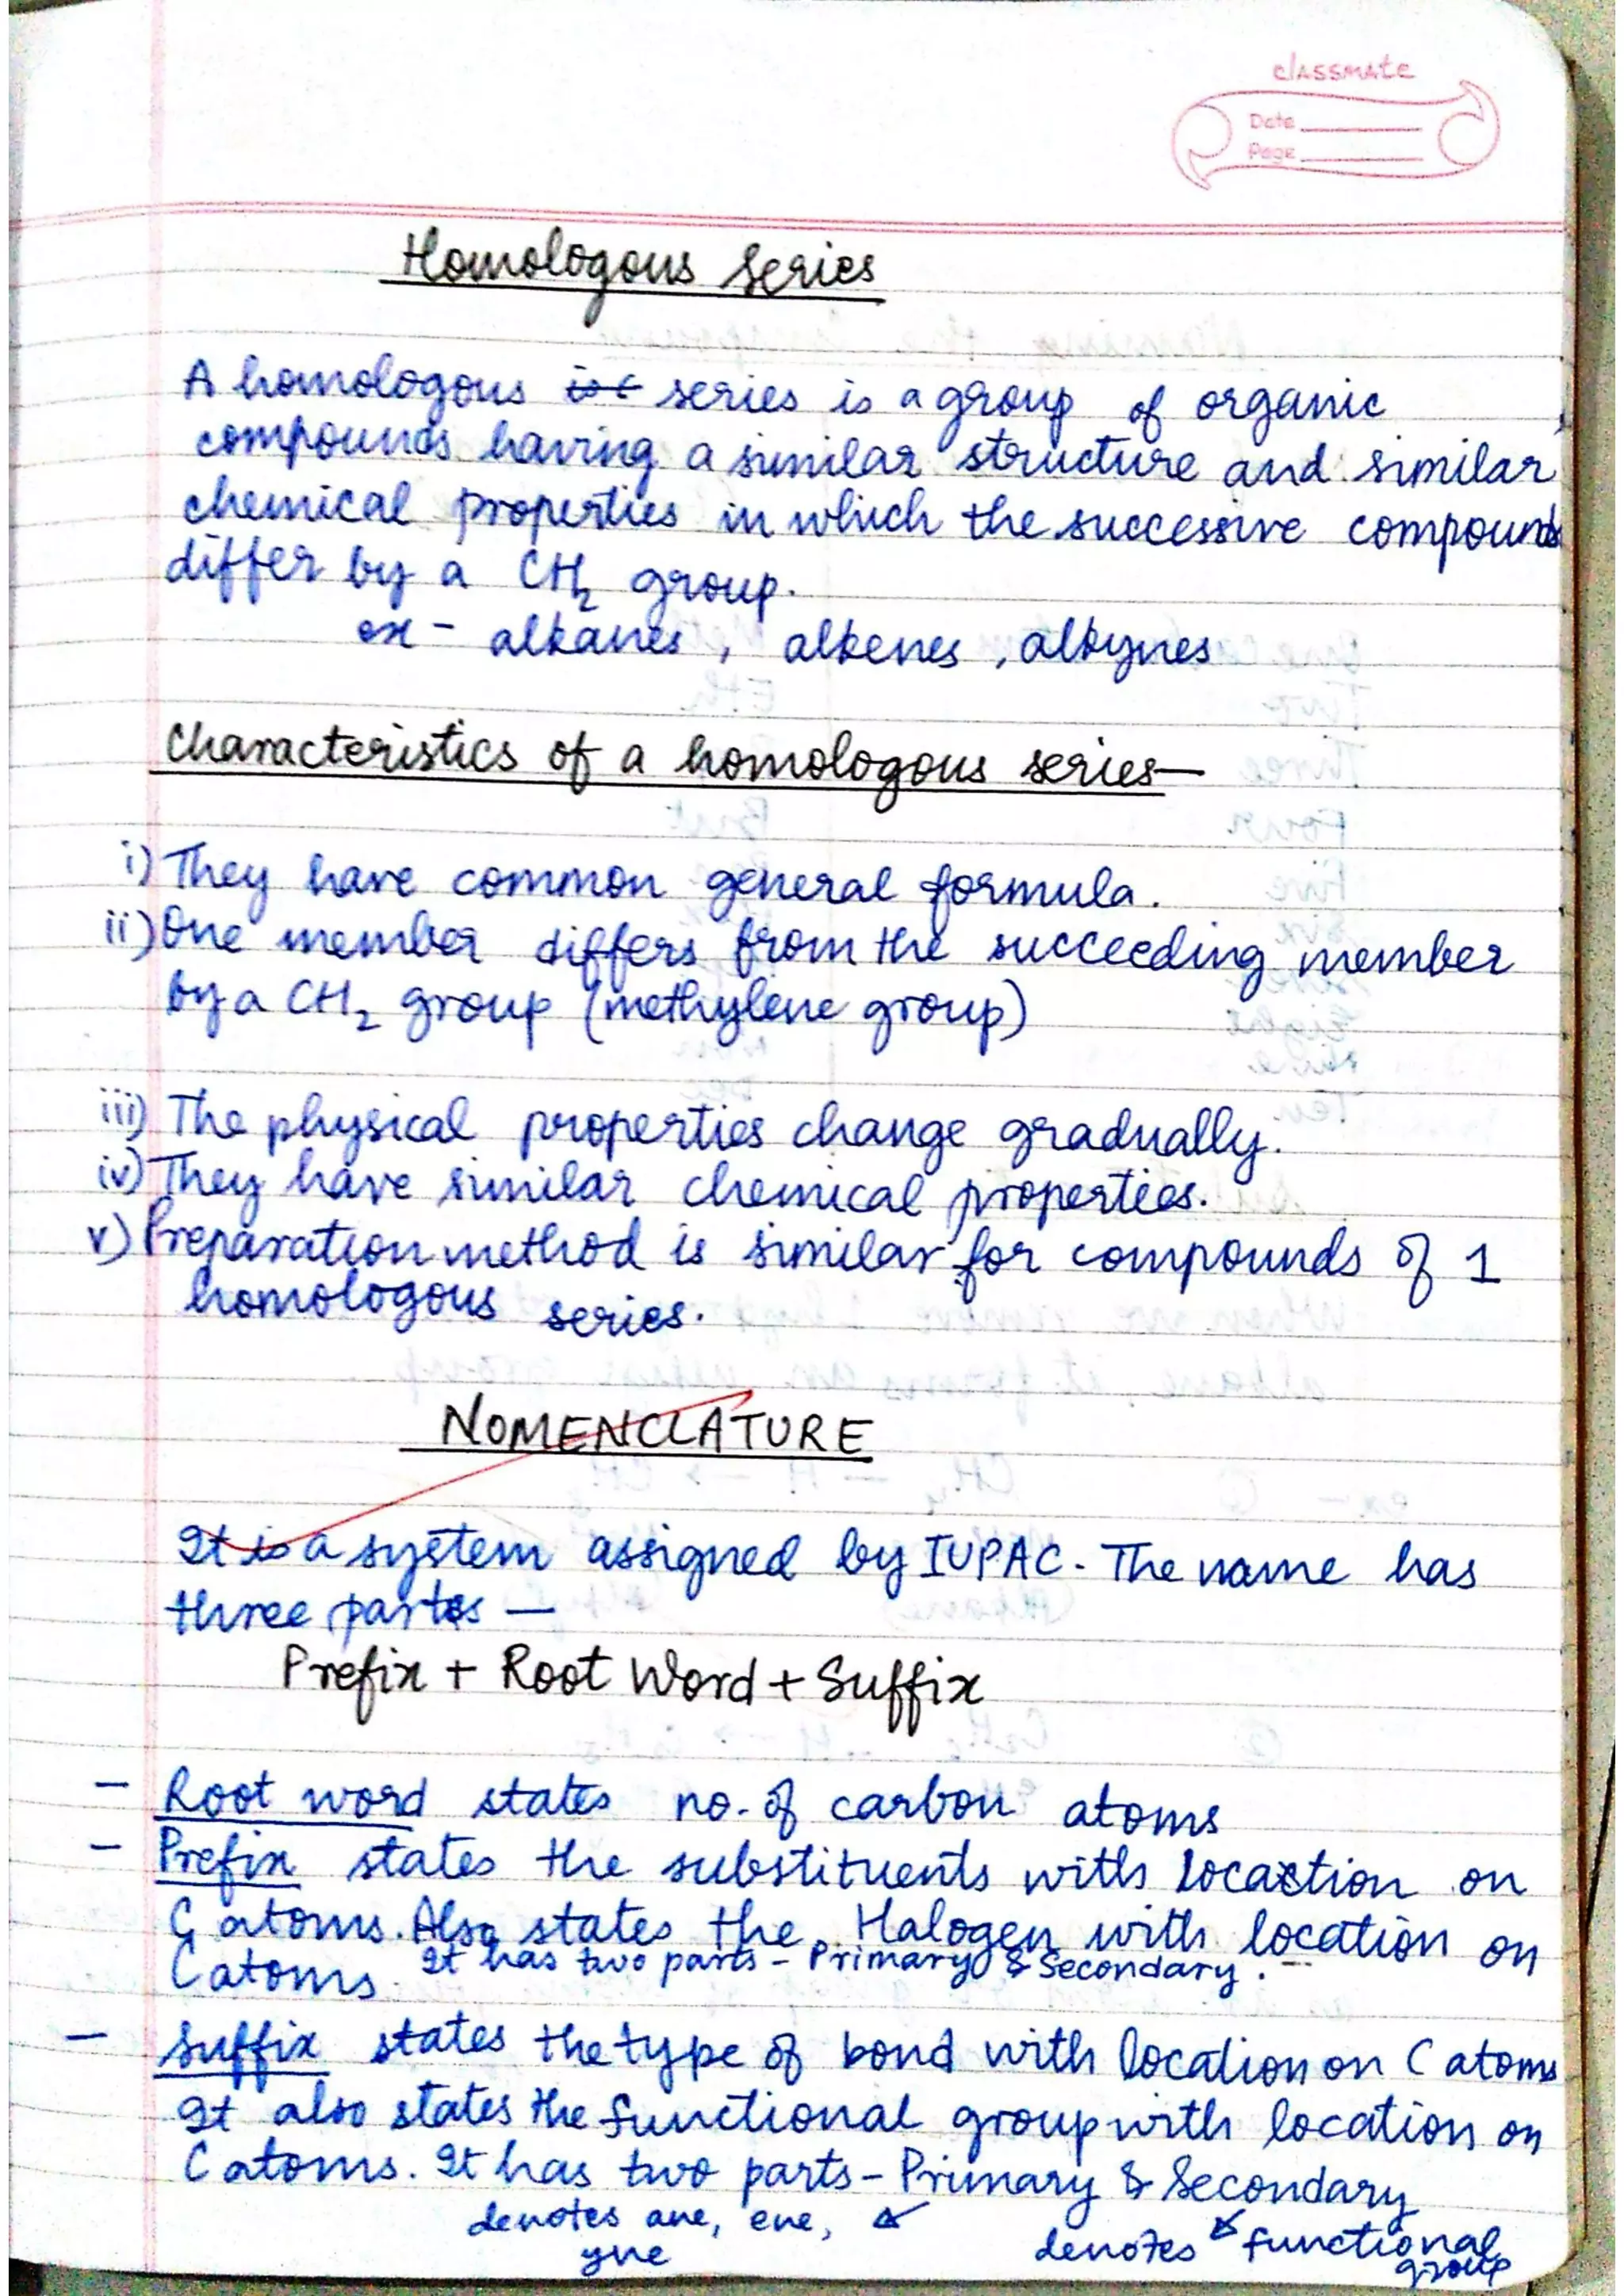 classmate
Date
Page
Homologous Series
A homologous series is a group of organic
compounds having a similar structure and similar
chemical properties in which the successive compounds
differ by a CH₂ group.
ex - alkanes, alkenes, alkynes
Characteristics of a homologous series—
i) They have common general formula.
ii) One member differs from the succeeding member
by a CH₂ group (methylene group)
iii) The physical properties change gradually.
iv) They have similar chemical properties.
v) Preparation method is similar for compounds of 1
homologous series.
NOMENCLATURE
It is a system assigned by IUPAC. The name has
three parts —
Prefix + Root Word + Suffix
- Root word states no. of carbon atoms
- Prefix states the substituents with location on
C atoms. Also states the Halogen with location on
C atoms. It has two parts - Primary & Secondary.
- Suffix states the type of bond with location on C atoms
It also states the functional group with location on
C atoms. It has two parts - Primary & Secondary
denotes ane, ene,
yne
denotes functional
group